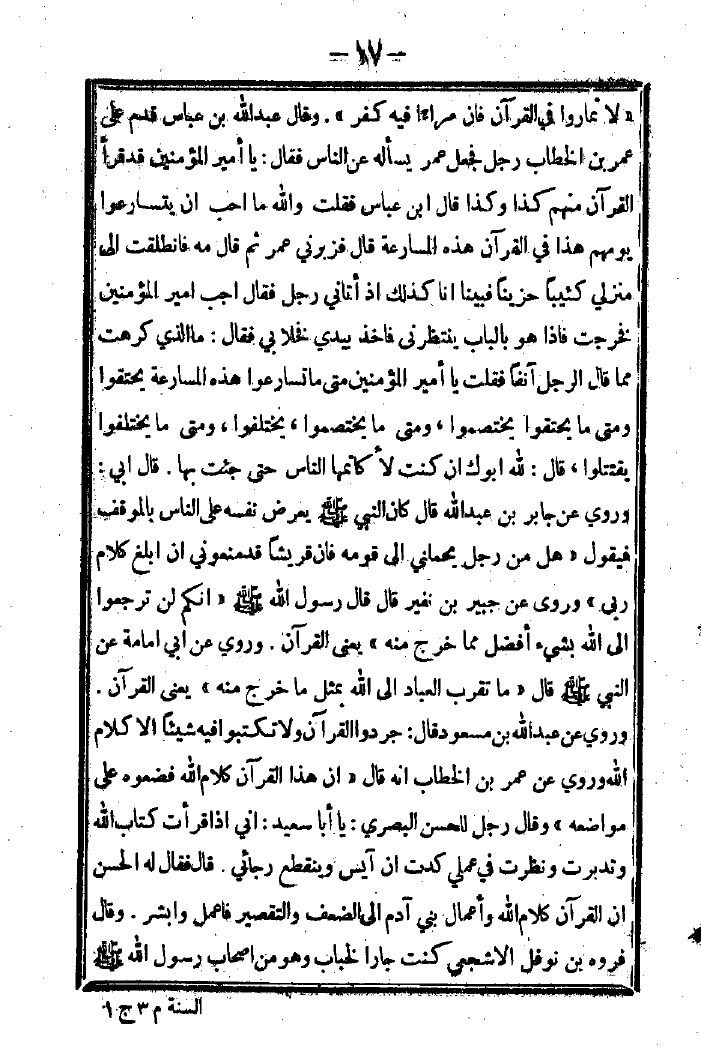 - ١٧ -
« لا تماروا في القرآن فان مراءا فيه كفر » . وقال عبدالله بن عباس قدم على
عمر بن الخطاب رجل فجعل عمر يسأله عن الناس فقال : يا أمير المؤمنين قد قرأ
القرآن منهم كذا وكذا قال ابن عباس فقلت والله ما احب ان يتسارعوا
يومهم هذا في القرآن هذه المسارعة قال فزبرني عمر ثم قال مه فانطلقت الى
منزلي كئيباً حزيناً فبينا انا كذلك اذ أتاني رجل فقال اجب امير المؤمنين
فخرجت فاذا هو بالباب ينتظرنى فاخذ بيدي فخلا بي فقال : ما الذي كرهت
مما قال الرجل آنفاً فقلت يا أمير المؤمنين متى ما تسارعوا هذه المسارعة يحتقوا
ومتى ما يحتقوا يختصموا ، ومتى ما يختصموا ، يختلفوا ، ومتى ما يختلفوا
يقتتلوا ، قال : لله ابوك ان كنت لأكاتمها الناس حتى جئت بها . قال ابي :
وروي عن جابر بن عبدالله قال كان النبي ﷺ يعرض نفسه على الناس بالموقف
فيقول « هل من رجل يحملني الى قومه فان قريشاً قد منعوني ان ابلغ كلام
ربى » وروى عن جبير بن نفير قال قال رسول الله ﷺ « انكم لن ترجعوا
الى الله بشيء أفضل مما خرج منه » يعنى القرآن . وروي عن ابي امامة عن
النبي ﷺ قال « ما تقرب العباد الى الله بمثل ما خرج منه » يعنى القرآن .
وروي عن عبدالله بن مسعود قال : جردوا القرآن ولا تكتبوا فيه شيئاً الا كلام
الله وروي عن عمر بن الخطاب انه قال « ان هذا القرآن كلام الله فضعوه على
مواضعه » وقال رجل للحسن البصري : يا أبا سعيد : اني اذا قرأت كتاب الله
وتدبرت ونظرت في عملي كدت ان آيس وينقطع رجائي . قال فقال له الحسن
ان القرآن كلام الله وأعمال بني آدم الى الضعف والتقصير فاعمل وابشر . وقال
فروه بن نوفل الاشجعي كنت جارا لخباب وهو من اصحاب رسول الله ﷺ
السنة م ٣ ج ١